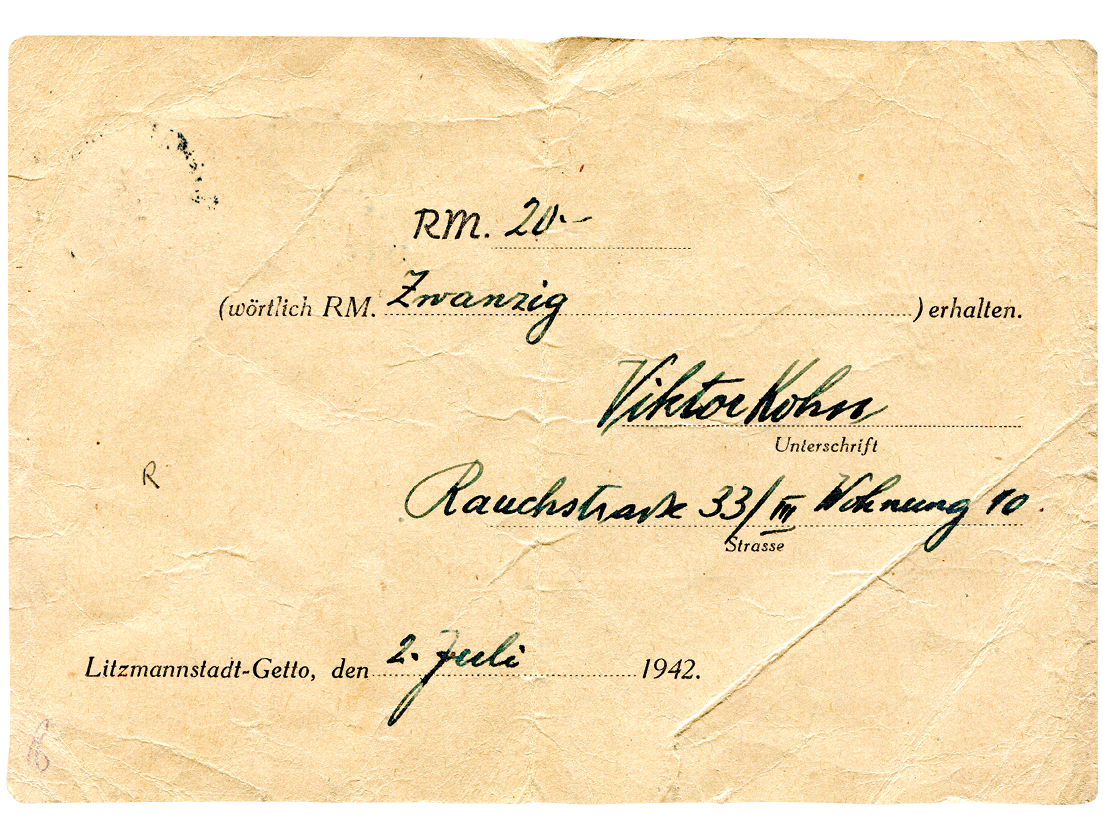 RM. 20.–
(wörtlich RM. Zwanzig ) erhalten.
Viktor Kohn
Unterschrift
R
Rauchstraße 33/III Wohnung 10.
Strasse
Litzmannstadt-Getto, den 2. Juli 1942.